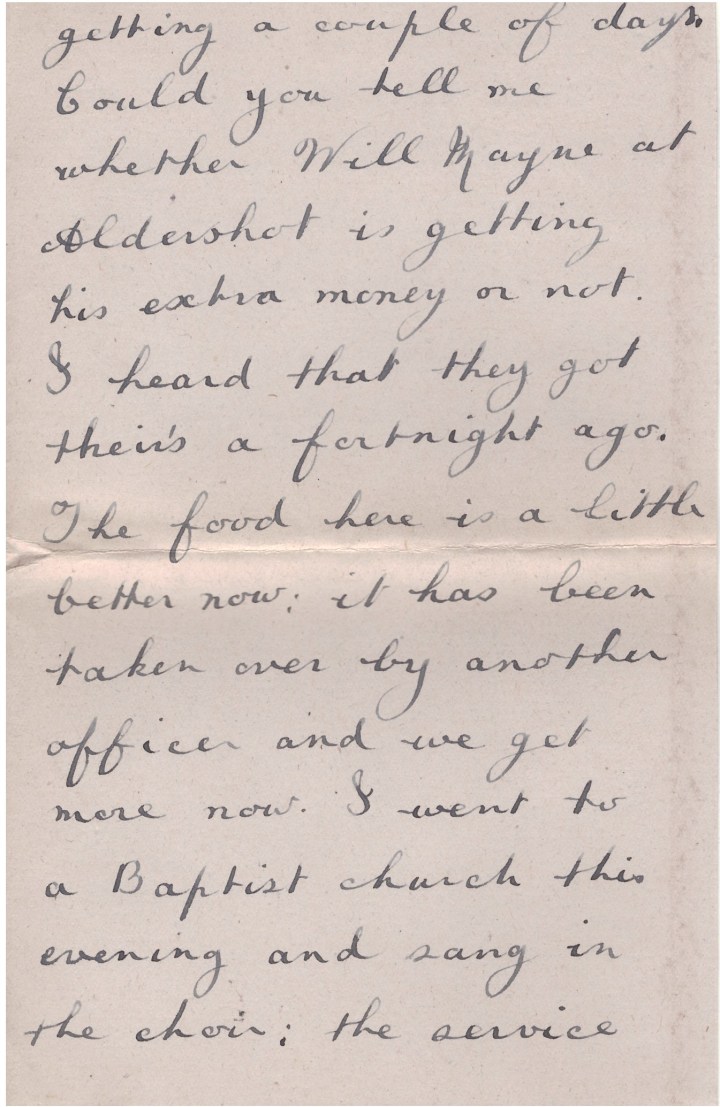 getting a couple of days.
Could you tell me
whether Will Mayne at
Aldershot is getting
his extra money or not.
I heard that they got
their's a fortnight ago.
The food here is a little
better now; it has been
taken over by another
officer and we get
more now. I went to
a Baptist church this
evening and sang in
the choir; the service